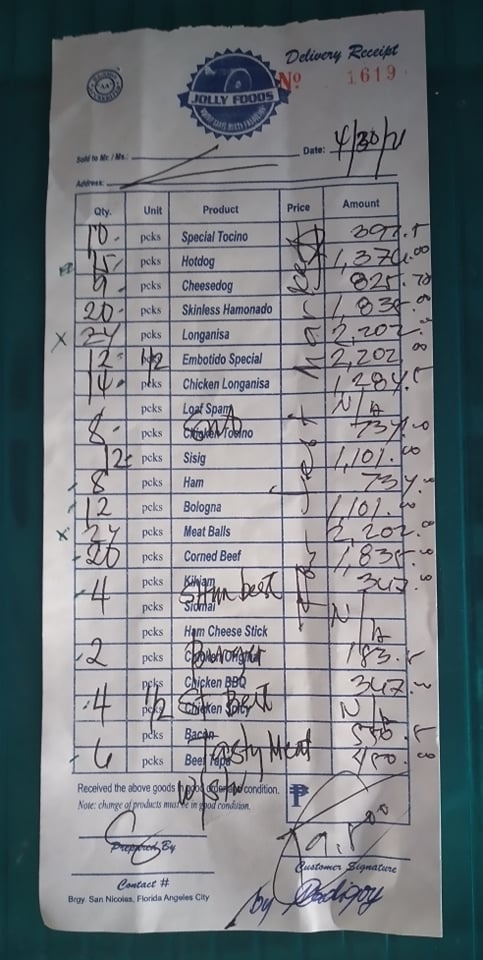 Delivery Receipt
JOLLY FOODS
Nº 1619
Sold to Mr. / Ms.:
Date: 4/30/21
Address:
Qty. Unit Product Price Amount
10 pcks Special Tocino 397.5
15 pcks Hotdog 1,376.00
9 pcks Cheesedog 825.75
20 pcks Skinless Hamonado 1,835
x 24 pcks Longanisa 2,202
12 1/2 pcks Embotido Special 2,202
14 pcks Chicken Longanisa 1,284.5
pcks Loaf Spam N/A
8 pcks Chicken Tocino 734.0
12 pcks Sisig 1,101.00
8 pcks Ham 734.0
12 pcks Bologna 1,101.00
x 24 pcks Meat Balls 2,202
20 pcks Corned Beef 1,835
4 pcks Kikiam 367
pcks Siomai
pcks Ham Cheese Stick N/A
2 pcks Chicken Original 183.5
pcks Chicken BBQ 367
4 1/2 pcks Chicken Spicy N/A
pcks Bacon 550.5
6 pcks Beef Tapa Tasty Meat 450.00
Received the above goods in good order and condition.
Note: change of products must be in good condition.
₱
Prepared By
Customer Signature
Contact #
by
Brgy. San Nicolas, Florida Angeles City